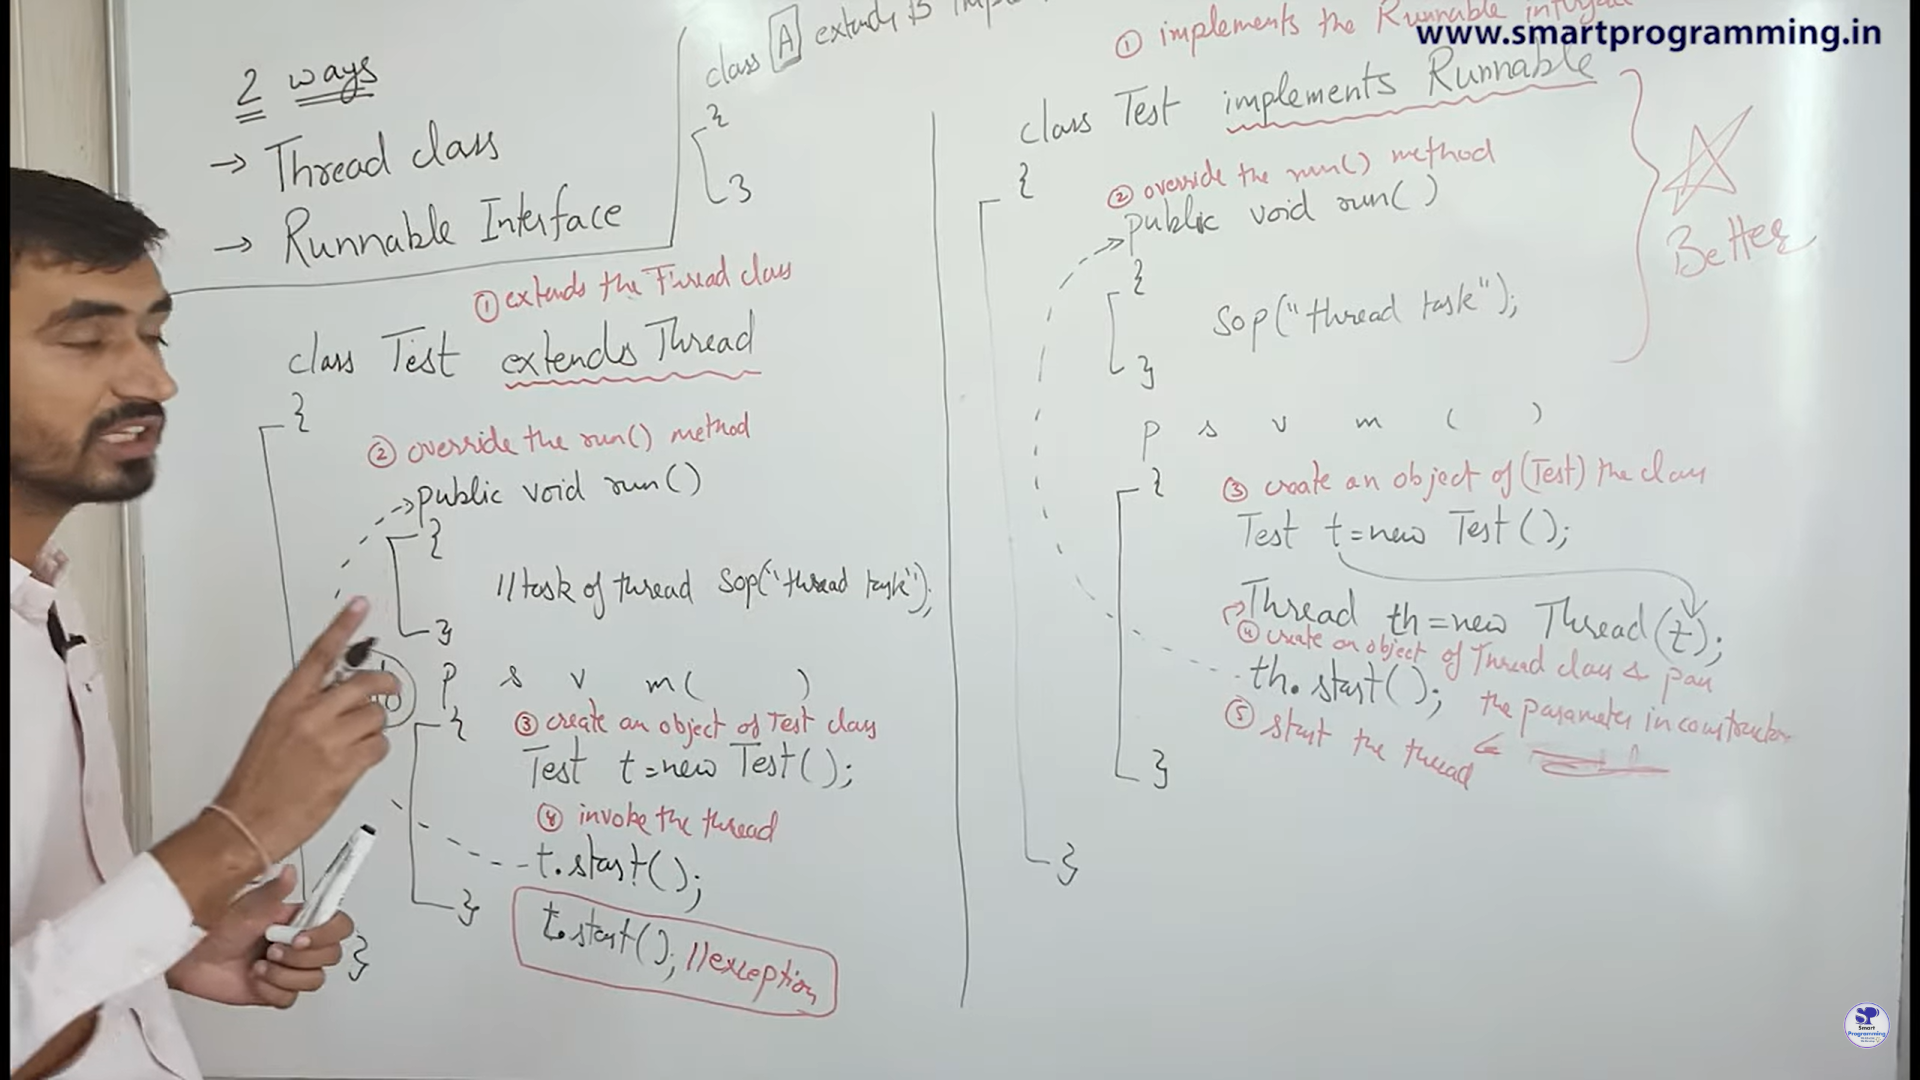 www.smartprogramming.in
2 ways
→ Thread class
→ Runnable Interface
class A extends B
{
}
① extends the Thread class
class Test extends Thread
{
② override the run() method
public void run()
{
//task of thread Sop("thread task");
}
p s v m( )
{
③ create an object of Test class
Test t=new Test();
④ invoke the thread
t.start();
}
t.start(); //exception
}
① implements the Runnable interface
class Test implements Runnable
{
② override the run() method
public void run()
{
Sop("thread task");
}
Better
p s v m ( )
{
③ create an object of (Test) the class
Test t=new Test();
Thread th=new Thread(t);
④ create an object of Thread class & pass
th.start();
the parameter in constructor
⑤ start the thread
}
}
SP
Smart
Programming